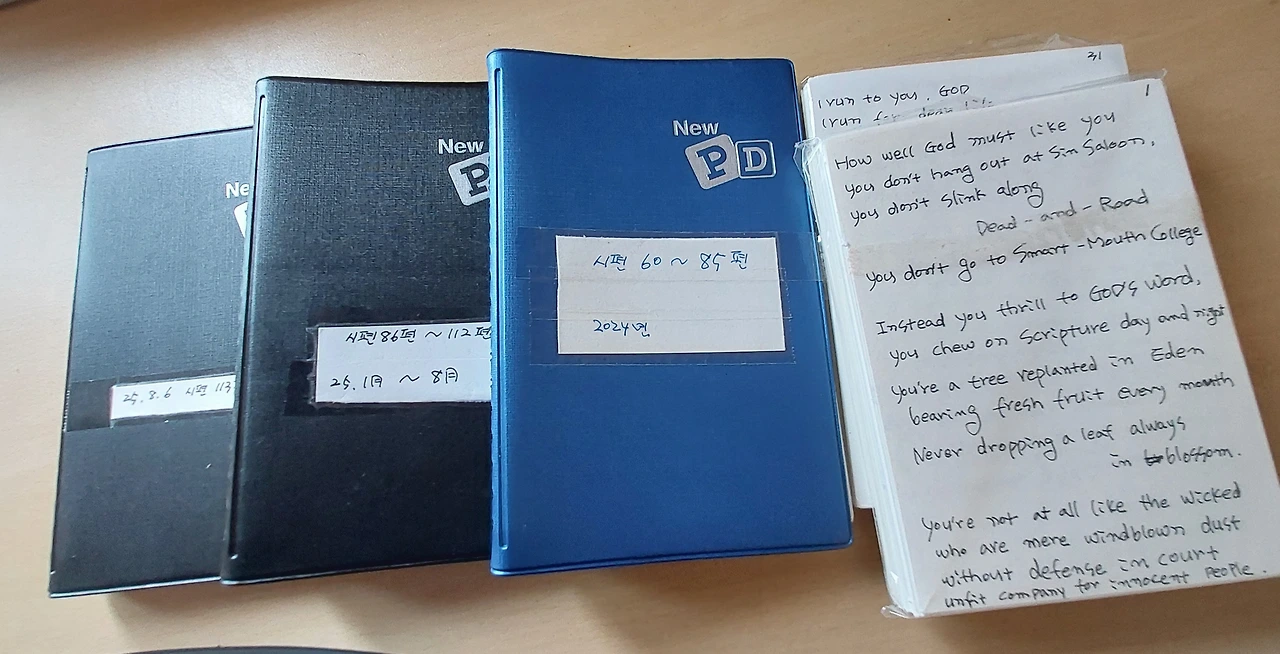 New
25.8.6 시편 113
New
P
시편86편 ~ 112편
25.1月 ~ 8月
New
PD
시편 60 ~ 85 편
2024년
31
I run to you, GOD
I run for dear life
1
How well God must like you
you don't hang out at Sin Saloon,
you don't slink along
Dead-and-Road
you don't go to Smart-Mouth College
Instead you thrill to GOD'S word,
you chew on Scripture day and night
You're a tree replanted in Eden
bearing fresh fruit every month
Never dropping a leaf always
in blossom.
You're not at all like the wicked
who are mere windblown dust
without defense in court
unfit company for innocent people.